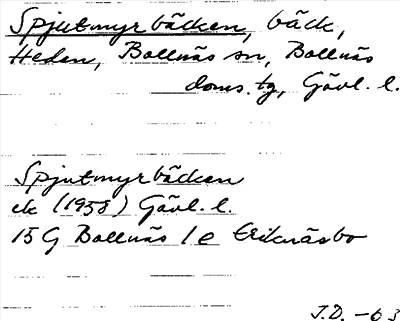 Spjutmyrbäcken, bäck,
Heden, Bollnäs sn, Bollnäs
doms. tg, Gävl. l.
Spjutmyrbäcken
ek (1958) Gävl. l.
15G Bollnäs 1 e Eriknäsbo
J.D. -63